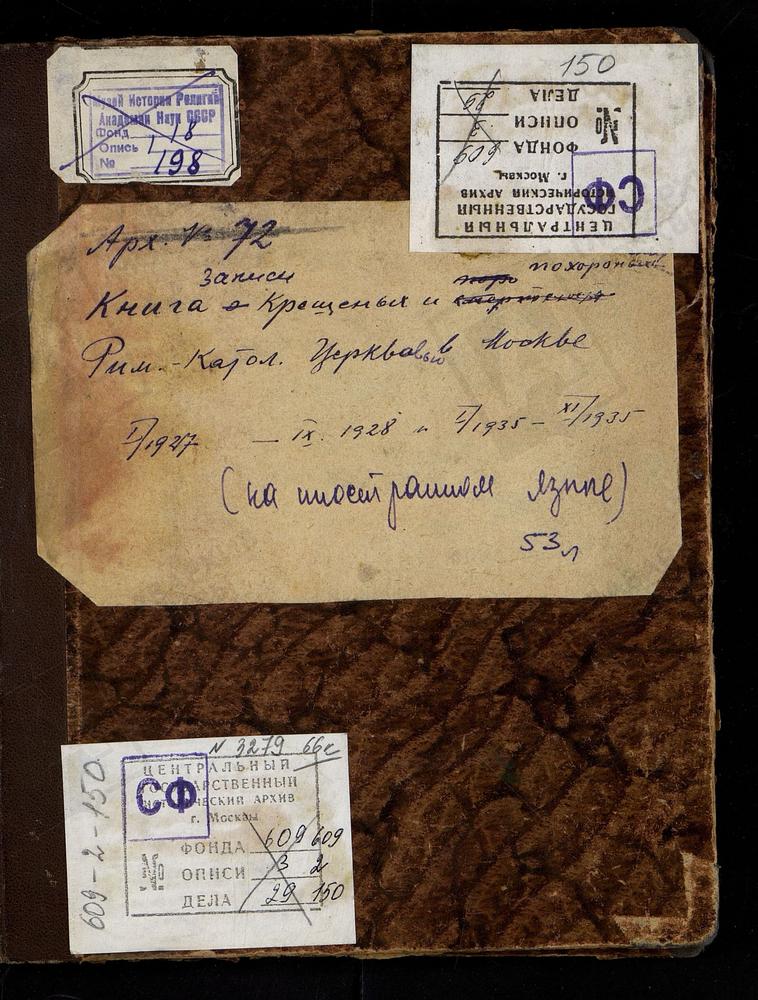 Музей Истории Религии
Академии Наук СССР
Фонд 18
Опись 1
№ 198
150
ЦЕНТРАЛЬНЫЙ
ГОСУДАРСТВЕННЫЙ
ИСТОРИЧЕСКИЙ АРХИВ
г. Москвы
СФ
ФОНДА 609
№ ОПИСИ 3
ДЕЛА
Арх. № 72
записи похорон
Книга Крещеных и
Рим.-Катол. Церквью в Москве
I/1927 — IX. 1928 и I/1935 — XI/1935
(на иностранном языке)
53 л
N 3279 66г
ЦЕНТРАЛЬНЫЙ
ГОСУДАРСТВЕННЫЙ
ИСТОРИЧЕСКИЙ АРХИВ
г. Москвы
СФ
ФОНДА 609 609
№ ОПИСИ 3 2
ДЕЛА 29 150
609-2-150